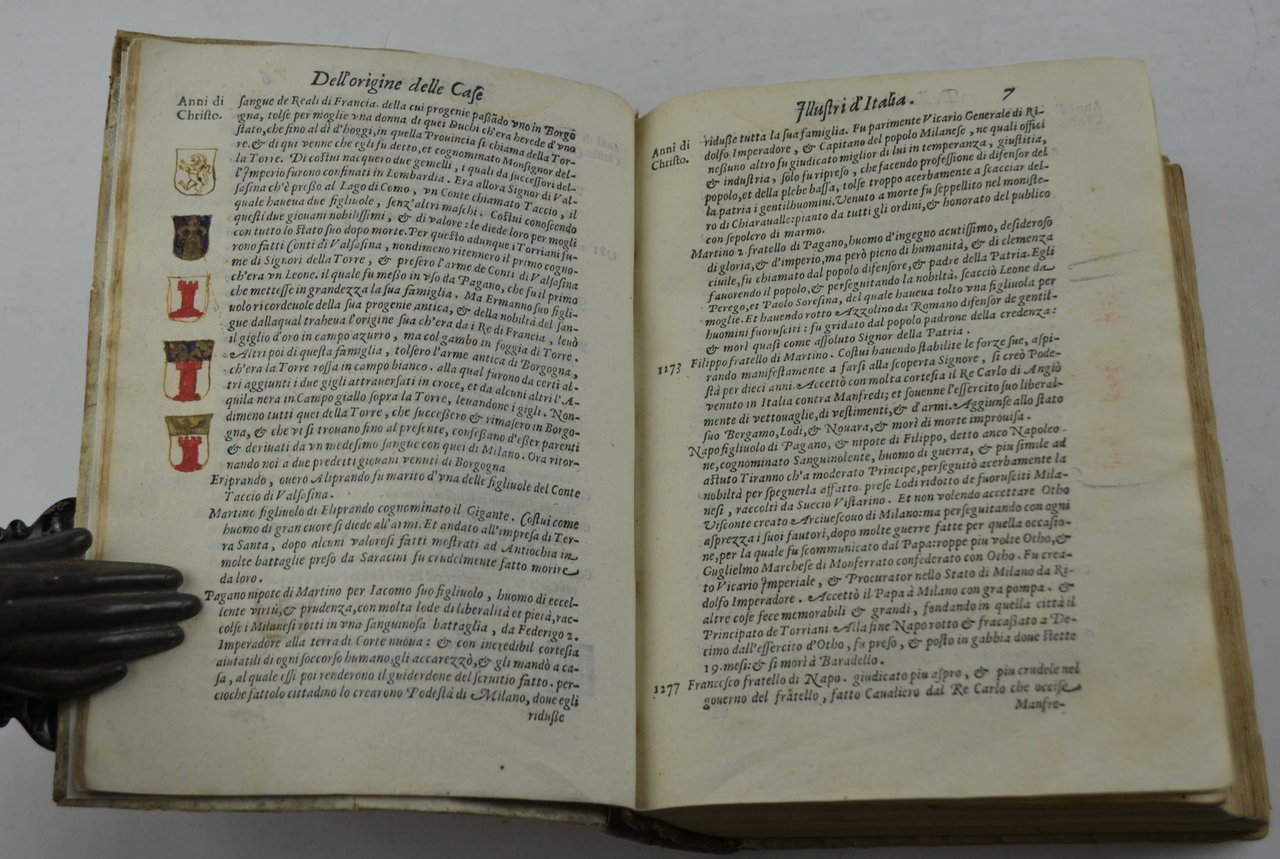 Dell'origine delle Caſe
Anni di
Chriſto.
ſangue de Reali di Francia. della cui progenie paſſādo vno in Borgo
gna, tolſe per moglie vna donna di quei Duchi ch'era herede d'vno
ſtato, che fino al dì d'hoggi, in quella Prouincia ſi chiama della Tor-
re. & di qui venne che egli fu detto, et cognominato Monſignor del-
la Torre. Di coſtui nacquero due gemelli, i quali da ſucceſſori del-
l'Imperio furono confinati in Lombardia. Era allora Signor di Val-
ſaſina ch'è preſſo al Lago di Como, vn Conte chiamato Taccio, il
quale haueua due figliuole, ſenz'altri maſchi. Coſtui conoſcendo
queſti due giouani nobiliſſimi, & di valore: le diede loro per mogli
con tutto lo ſtato ſuo dopo morte. Per queſto adunque i Torriani fu-
rono fatti Conti di Valſaſina, nondimeno ritennero il primo cogno-
me di Signori della Torre, & preſero l'arme de Conti di Valſaſina
ch'era vn Leone. il quale fu meſſo in vſo da Pagano, che fu il primo
che metteſſe in grandezza la ſua famiglia. Ma Ermanno ſuo figli-
uolo ricordeuole della ſua progenie antica, & della nobiltà del ſan-
gue dallaqual traheua l'origine ſua ch'era da i Re di Francia, leuò
il giglio d'oro in campo azurro, ma col gambo in foggia di Torre.
Altri poi di queſta famiglia, tolſero l'arme antica di Borgogna,
ch'era la Torre roſſa in campo bianco. alla qual furono da certi al-
tri aggiunti i due gigli attrauerſati in croce, et da alcuni altri l'A-
quila nera in Campo giallo ſopra la Torre, leuandone i gigli. Non-
dimeno tutti quei della Torre, che ſucceſſero & rimaſero in Borgo-
gna, & che vi ſi trouano fino al preſente, confeſſano d'eſſer parenti
& deriuati da vn medeſimo ſangue con quei di Milano. Ora ritor-
nando noi a due predetti giouani venuti di Borgogna
Eriprando, ouero Aliprando fu marito d'vna delle figliuole del Conte
Taccio di Valſaſina.
Martino figliuolo di Eliprando cognominato il Gigante. Coſtui come
huomo di gran cuore ſi diede all'armi. Et andato all'impreſa di Ter-
ra Santa, dopo alcuni valoroſi fatti moſtrati ad Antiochia in
molte battaglie preſo da Saracini fu crudelmente fatto morire
da loro.
Pagano nipote di Martino per Iacomo ſuo figliuolo, huomo di eccel-
lente virtù, & prudenza, con molta lode di liberalità et pietà, rac-
colſe i Milaneſi rotti in vna ſanguinoſa battaglia, da Federigo 2.
Imperadore alla terra di Corte nuoua: & con incredibil corteſia
aiutatili di ogni ſoccorſo humano, gli accarezzò, & gli mandò a ca-
ſa, al quale eſſi poi renderono il guiderdone del ſeruitio fatto. per-
cioche fattolo cittadino lo crearono Podeſtà di Milano, doue egli
riduſſe
Illuſtri d'Italia. 7
Anni di
Chriſto.
riduſſe tutta la ſua famiglia. Fu parimente Vicario Generale di Ri-
dolfo Imperadore, & Capitano del popolo Milaneſe, ne quali offici
neſſuno altro fu giudicato miglior di lui in temperanza, giuſtitia,
& induſtria, ſolo fu ripreſo, che facendo profeſſione di difenſor del
popolo, et della plebe baſſa, tolſe troppo acerbamente a ſcacciar del-
la patria i gentilhuomini. Venuto a morte fu ſeppellito nel moniſte-
ro di Chiaraualle: pianto da tutti gli ordini, & honorato del publico
con ſepolcro di marmo.
Martino 2 fratello di Pagano, huomo d'ingegno acutiſſimo, deſideroſo
di gloria, & d'imperio, ma però pieno di humanità, & di clemenza
ciuile, fu chiamato dal popolo difenſore, & padre della Patria. Egli
fauorendo il popolo, & perſeguitando la nobiltà, ſcacciò Leone da
Perego, et Paolo Soreſina, del quale haueua tolto vna figliuola per
moglie. Et hauendo rotto Azzolino da Romano difenſor de gentil-
huomini fuoruſciti: fu gridato dal popolo padrone della credenza:
& morì quaſi come aſſoluto Signor della Patria.
1273 Filippo fratello di Martino. Coſtui hauendo ſtabilite le forze ſue, aſpi-
rando manifeſtamente a farſi alla ſcoperta Signore, ſi creò Pode-
ſtà per dieci anni. Accettò con molta corteſia il Re Carlo di Angiò
venuto in Italia contra Manfredi; et ſouenne l'eſſercito ſuo liberal-
mente di vettouaglie, di veſtimenti, & d'armi. Aggiunſe allo ſtato
ſuo Bergamo, Lodi, & Nouara, & morì di morte improuiſa.
Napo figliuolo di Pagano, & nipote di Filippo, detto anco Napoleo-
ne, cognominato Sanguinolente, huomo di guerra, & piu ſimile ad
aſtuto Tiranno ch'a moderato Principe, perſeguitò acerbamente la
nobiltà per ſpegnerla affatto. preſe Lodi ridotto de fuoruſciti Mila-
neſi, raccolti da Suecio Viſtarino. Et non volendo accettare Otho
Viſconte creato Arciueſcouo di Milano: ma perſeguitando con ogni
aſprezza i ſuoi fautori, dopo molte guerre fatte per quella occaſio-
ne, per la quale fu ſcommunicato dal Papa: roppe piu volte Otho, &
Guglielmo Marcheſe di Monferrato confederato con Otho. Fu crea-
to Vicario Imperiale, & Procurator nello Stato di Milano da Ri-
dolfo Imperadore. Accettò il Papa à Milano con gra pompa. &
altre coſe fece memorabili & grandi, fondando in quella città il
Principato de Torriani. Alla fine Napo rotto & fracaſſato a De-
cimo dall'eſſercito d'Otho, fu preſo, & poſto in gabbia doue ſtette
19. meſi: & ſi morì à Baradello.
1277 Franceſco fratello di Napo. giudicato piu aſpro, & piu crudele nel
gouerno del fratello, fatto Caualiero dal Re Carlo che occiſe
Manfre-